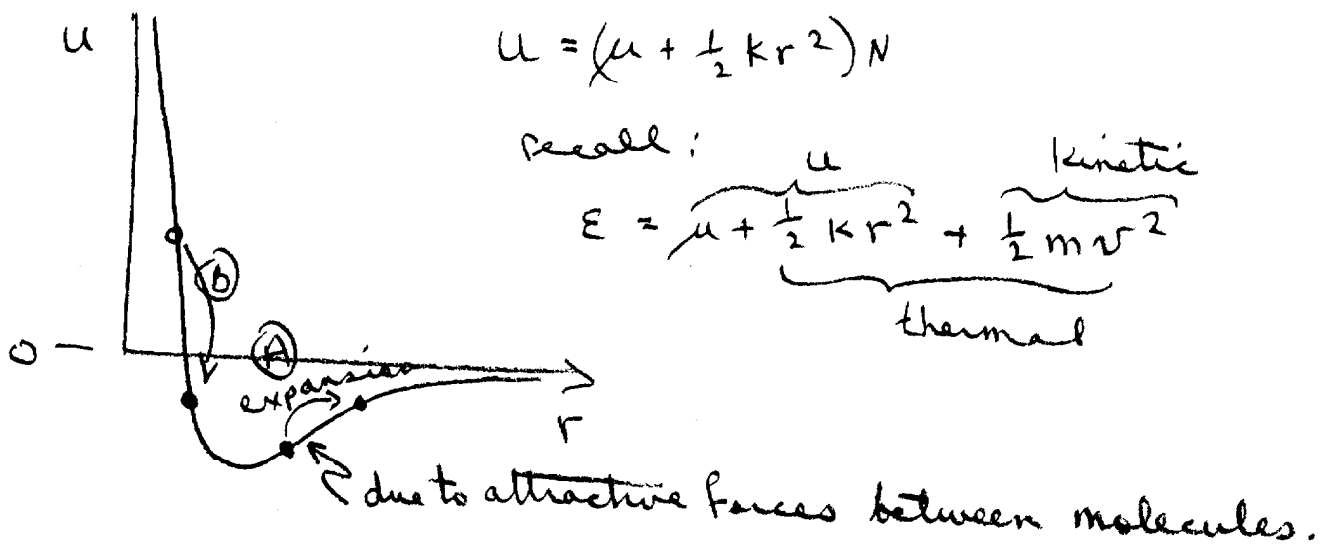 u
U = (μ + ½ k r²) N
recall :
u kinetic
ε = μ + ½ k r² + ½ m v²
thermal
B
0 — A
expansion
r
due to attractive forces between molecules.